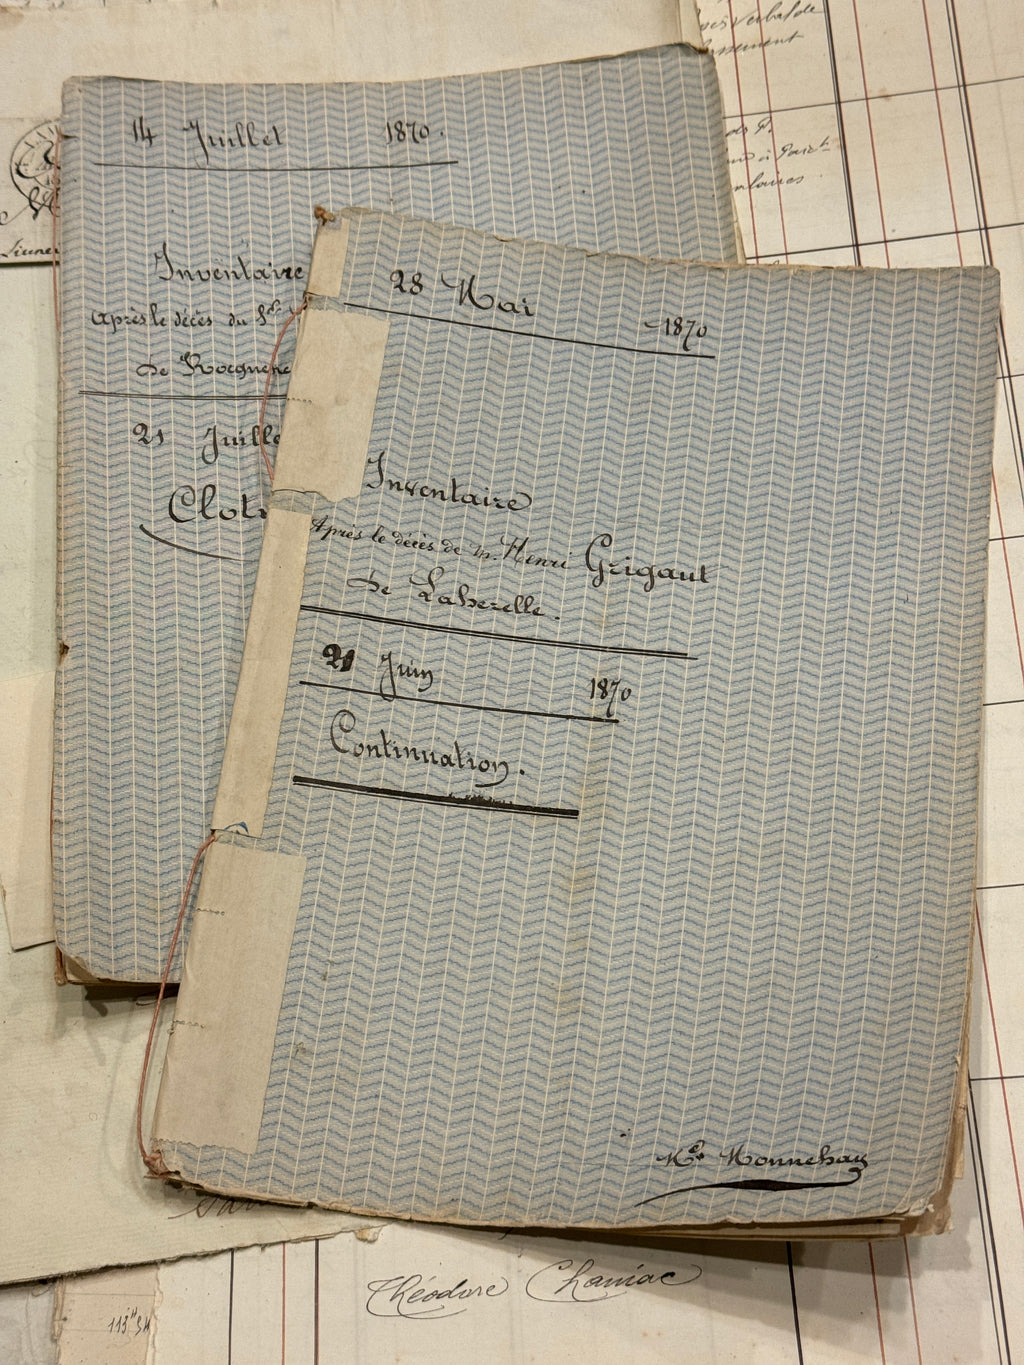 14 Juillet 1870.
Inventaire
Après le décès du
de
21
28 Mai 1870
Inventaire
Après le décès de M. Henri Grigaut
de Laherelle.
21 Juin 1870
Continuation.
Me. Monnehay
Théodore Chaniac